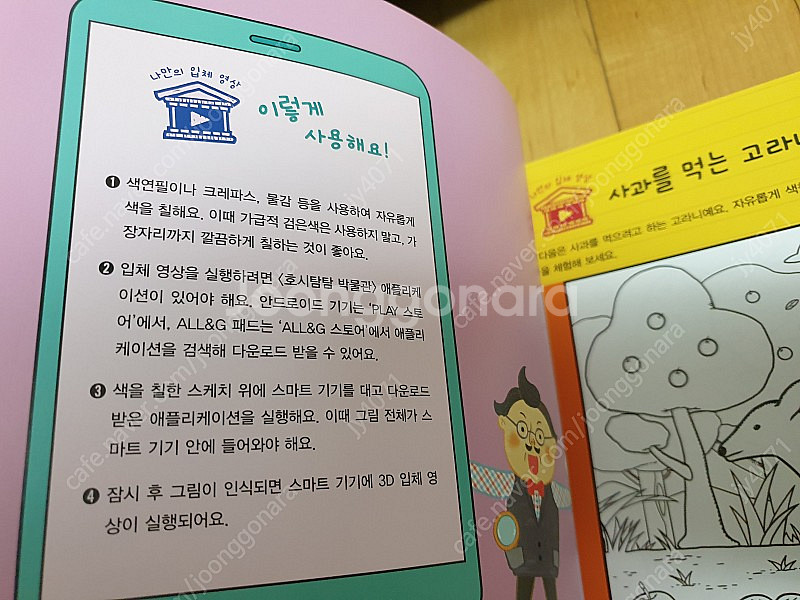 나만의 입체 영상
이렇게
사용해요!
❶ 색연필이나 크레파스, 물감 등을 사용하여 자유롭게
색을 칠해요. 이때 가급적 검은색은 사용하지 말고, 가
장자리까지 깔끔하게 칠하는 것이 좋아요.
❷ 입체 영상을 실행하려면 <호시탐탐 박물관> 애플리케
이션이 있어야 해요. 안드로이드 기기는 'PLAY 스토
어'에서, ALL&G 패드는 'ALL&G 스토어'에서 애플리
케이션을 검색해 다운로드 받을 수 있어요.
❸ 색을 칠한 스케치 위에 스마트 기기를 대고 다운로드
받은 애플리케이션을 실행해요. 이때 그림 전체가 스
마트 기기 안에 들어와야 해요.
❹ 잠시 후 그림이 인식되면 스마트 기기에 3D 입체 영
상이 실행되어요.
나만의 입체 영상
사과를 먹는 고라니
다음은 사과를 먹으려고 하는 고라니예요. 자유롭게 색
을 체험해 보세요.
joonggonara
cafe.naver.com/joonggonara
jy4071